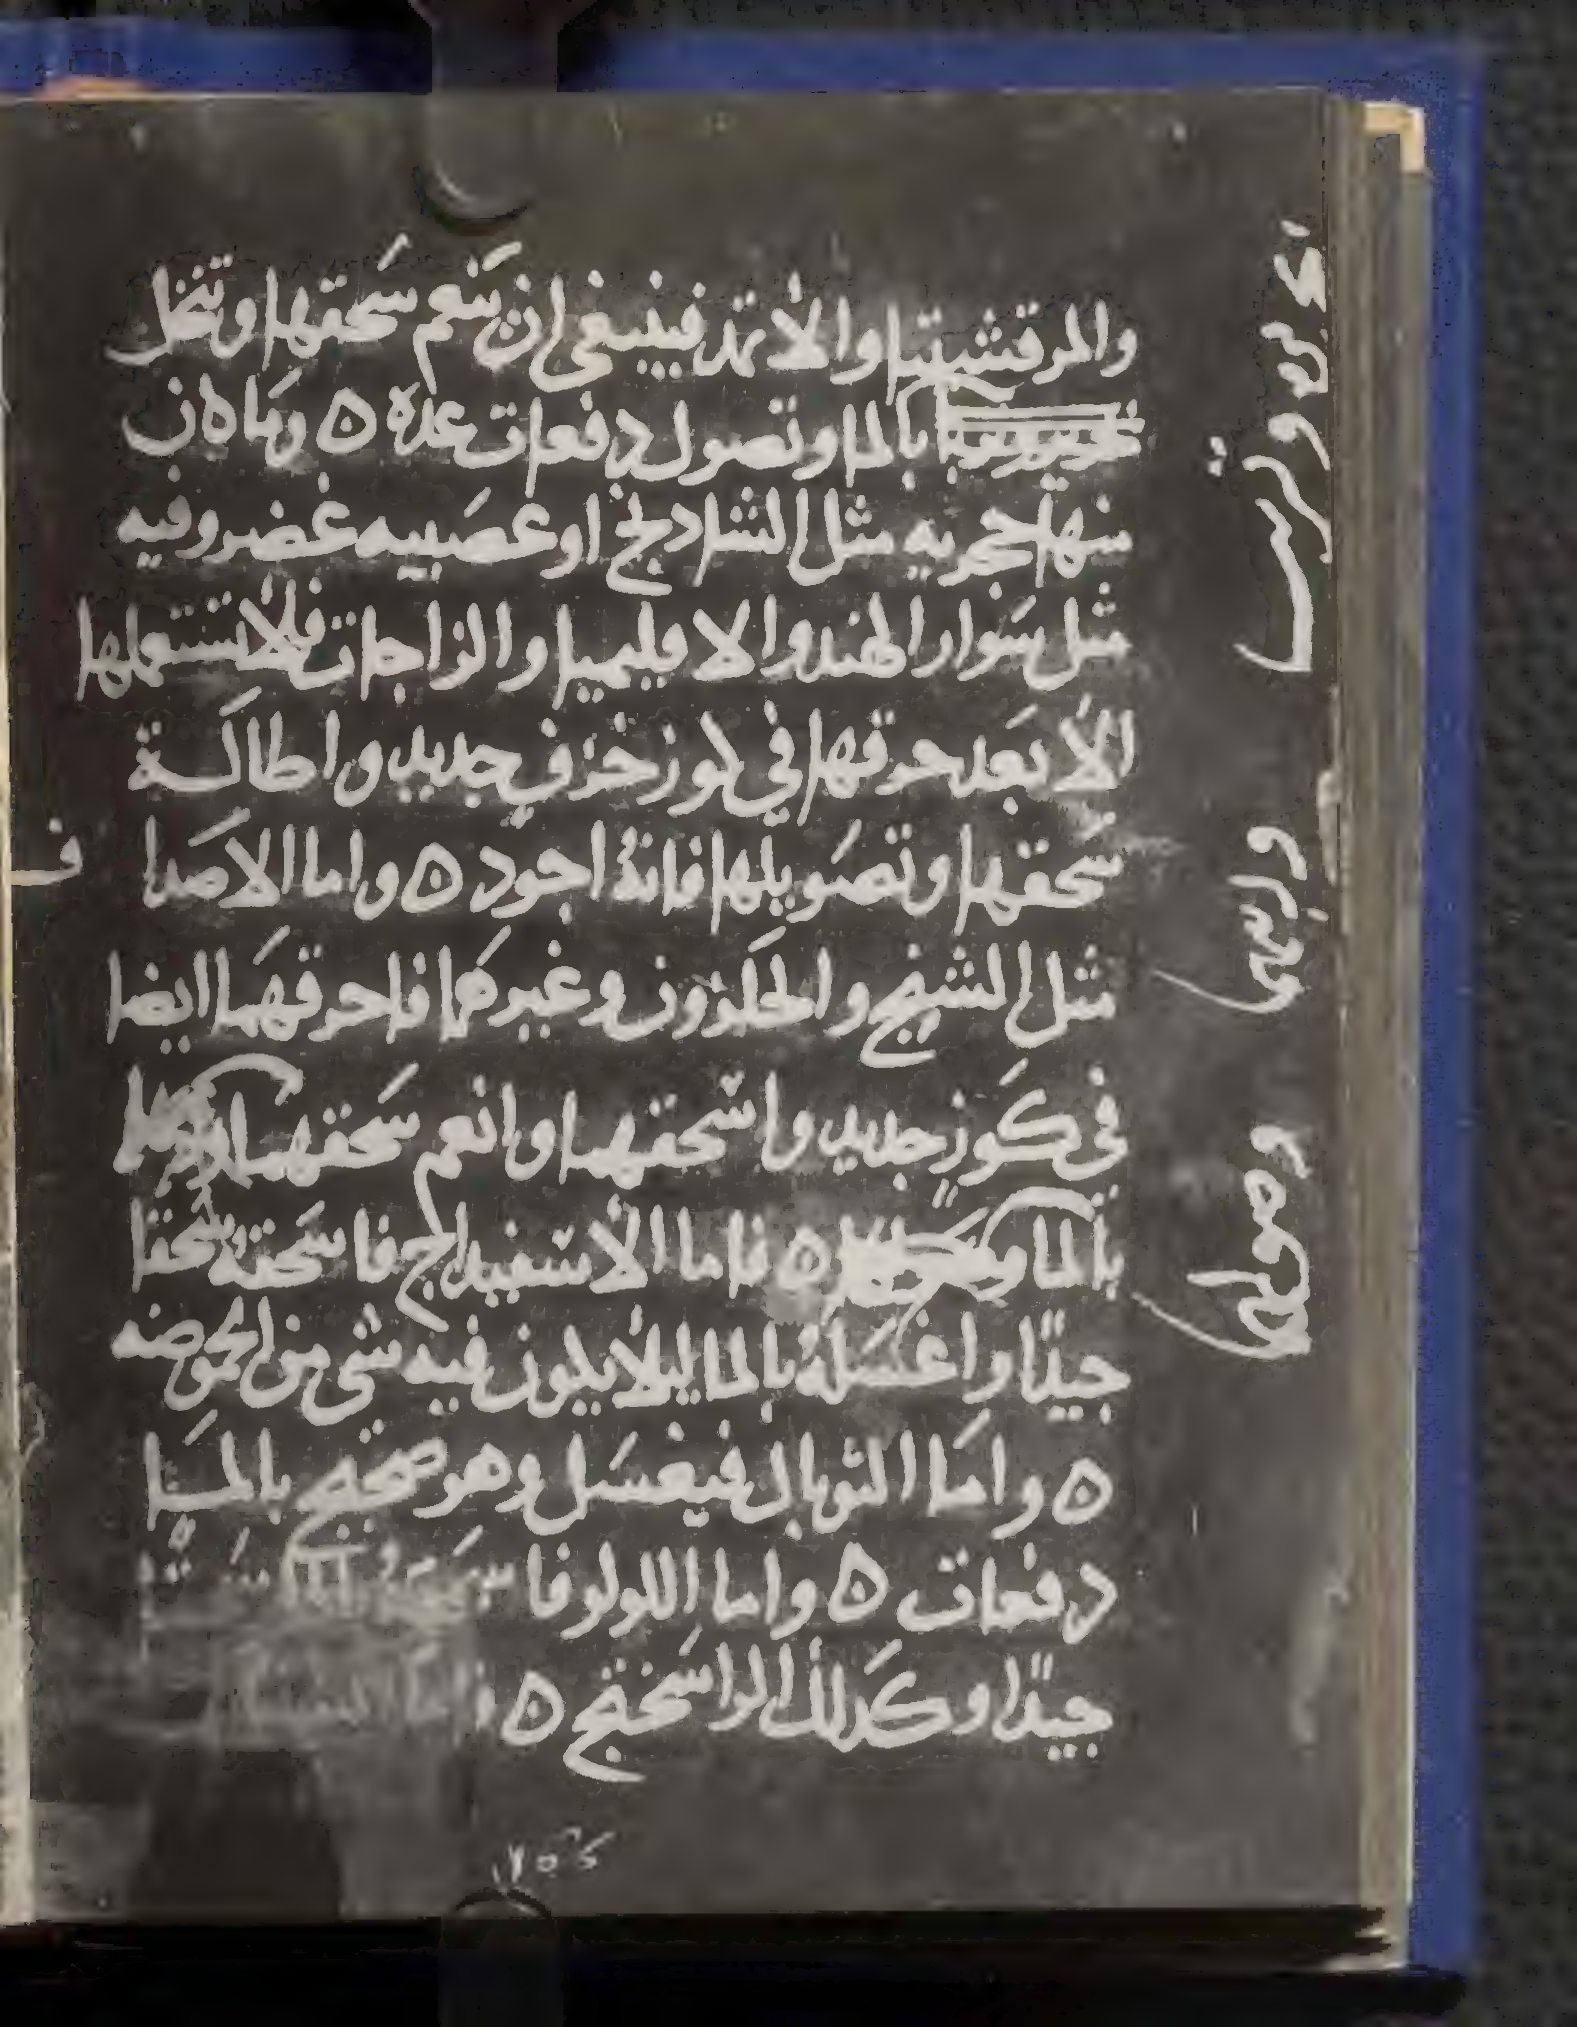 والمرقشيثا والاثمد فينبغي ان تنعم سَحقها وتنخل
بالما وتصول دفعات عده ٥ وما كان
منها حجريه مثل الشادنج او عصَبيه غضروفيه
مثل سَوار الهند والاقليميا والزاجات فلا تستعملها
الا بَعد حرقها في كوز خزف جديد واطالَة
سَحقها وتصَويلها فانهُ اجود ٥ واما الاصَدا
مثل الشنج والحلَزون وغيرهما فاحرقهَما ايضا
في كَوزٍ جديد واسحقهما وانعم سَحقهما
بالما ٥ فاما الاسفيداج فاسَحقهُ سَحقا
جيدًا واغسَلهُ بالما ليلا يكون فيه شي من الحموضه
٥ واما التوبال فيغسَل وهو صحيح بالمَا
دفعات ٥ واما اللولو فا
جيدًا وكَدلك الراسَختج ٥